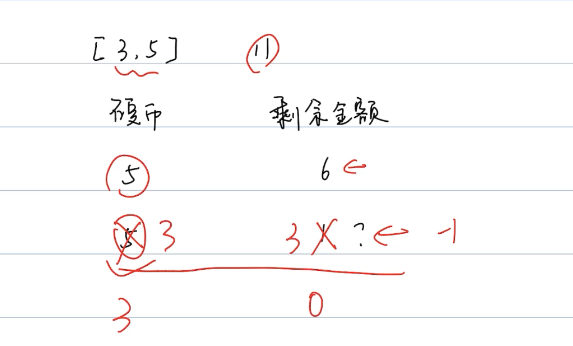 [3,5] 11
硬币 剩余金额
5 6 ←
5 3 3 X ? ← -1
3 0